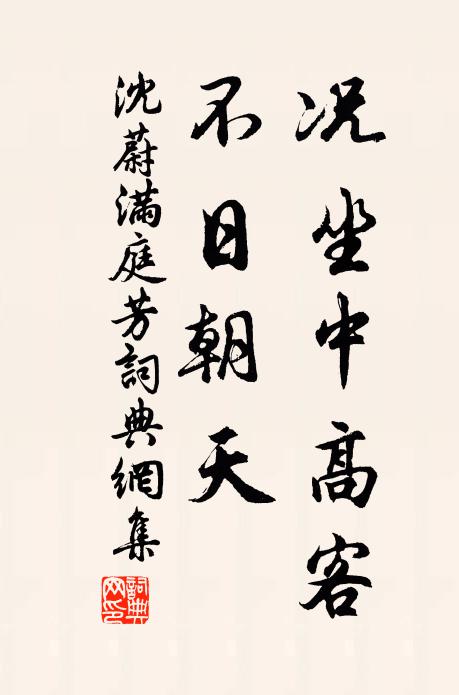 况坐中高客
不日朝天
沈蔚满庭芳詞典網集
詞典網印